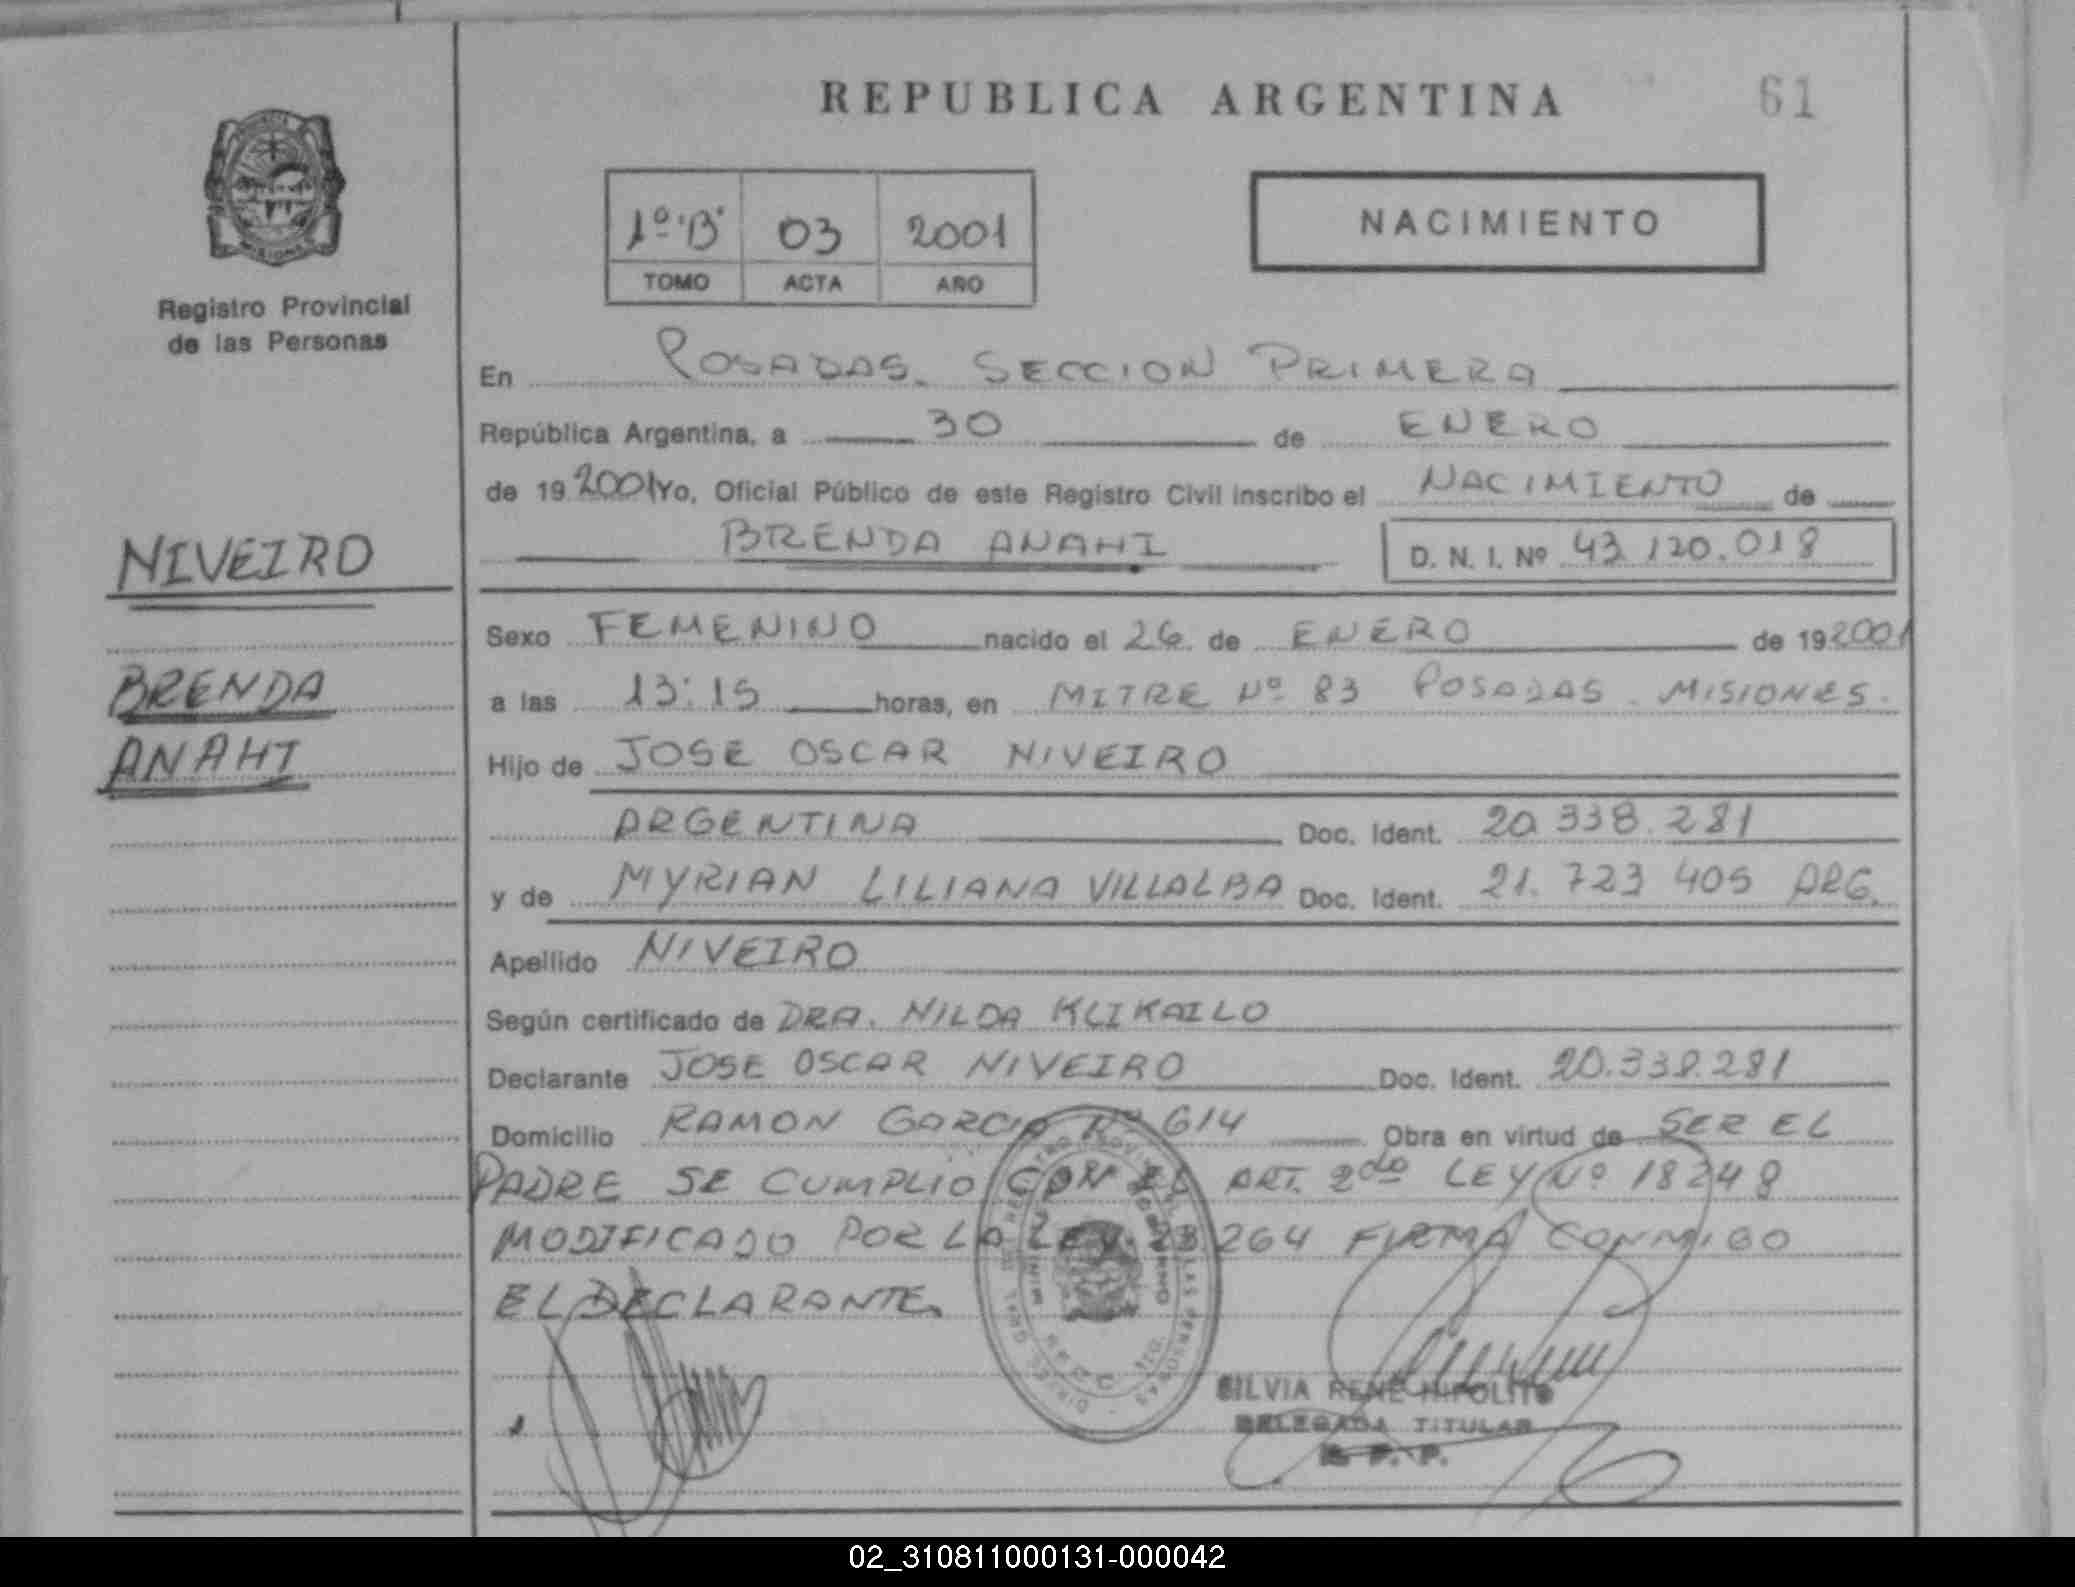 REPUBLICA ARGENTINA
61
Registro Provincial
de las Personas
1º "B" 03 2001
TOMO ACTA AÑO
NACIMIENTO
En POSADAS. SECCION PRIMERA
República Argentina, a 30 de ENERO
de 19 2001 Yo, Oficial Público de este Registro Civil inscribo el NACIMIENTO de
BRENDA ANAHI D. N. I. Nº 43.120.018
NIVEIRO
BRENDA
ANAHI
Sexo FEMENINO nacido el 26 de ENERO de 19 2001
a las 13:15 horas, en MITRE Nº 83 POSADAS. MISIONES.
Hijo de JOSE OSCAR NIVEIRO
ARGENTINA Doc. Ident. 20.338.281
y de MYRIAN LILIANA VILLALBA Doc. Ident. 21.723 405 ARG.
Apellido NIVEIRO
Según certificado de DRA. NILDA KLIKAILO
Declarante JOSE OSCAR NIVEIRO Doc. Ident. 20.338.281
Domicilio RAMON GARCIA Nº 614 Obra en virtud de SER EL
PADRE SE CUMPLIO CON EL ART. 2do LEY Nº 18248
MODIFICADO POR LA LEY. 23264 FIRMA CONMIGO
EL DECLARANTE.
SILVIA RENE HIPOLITO
DELEGADA TITULAR
R. P. P.
02_310811000131-000042